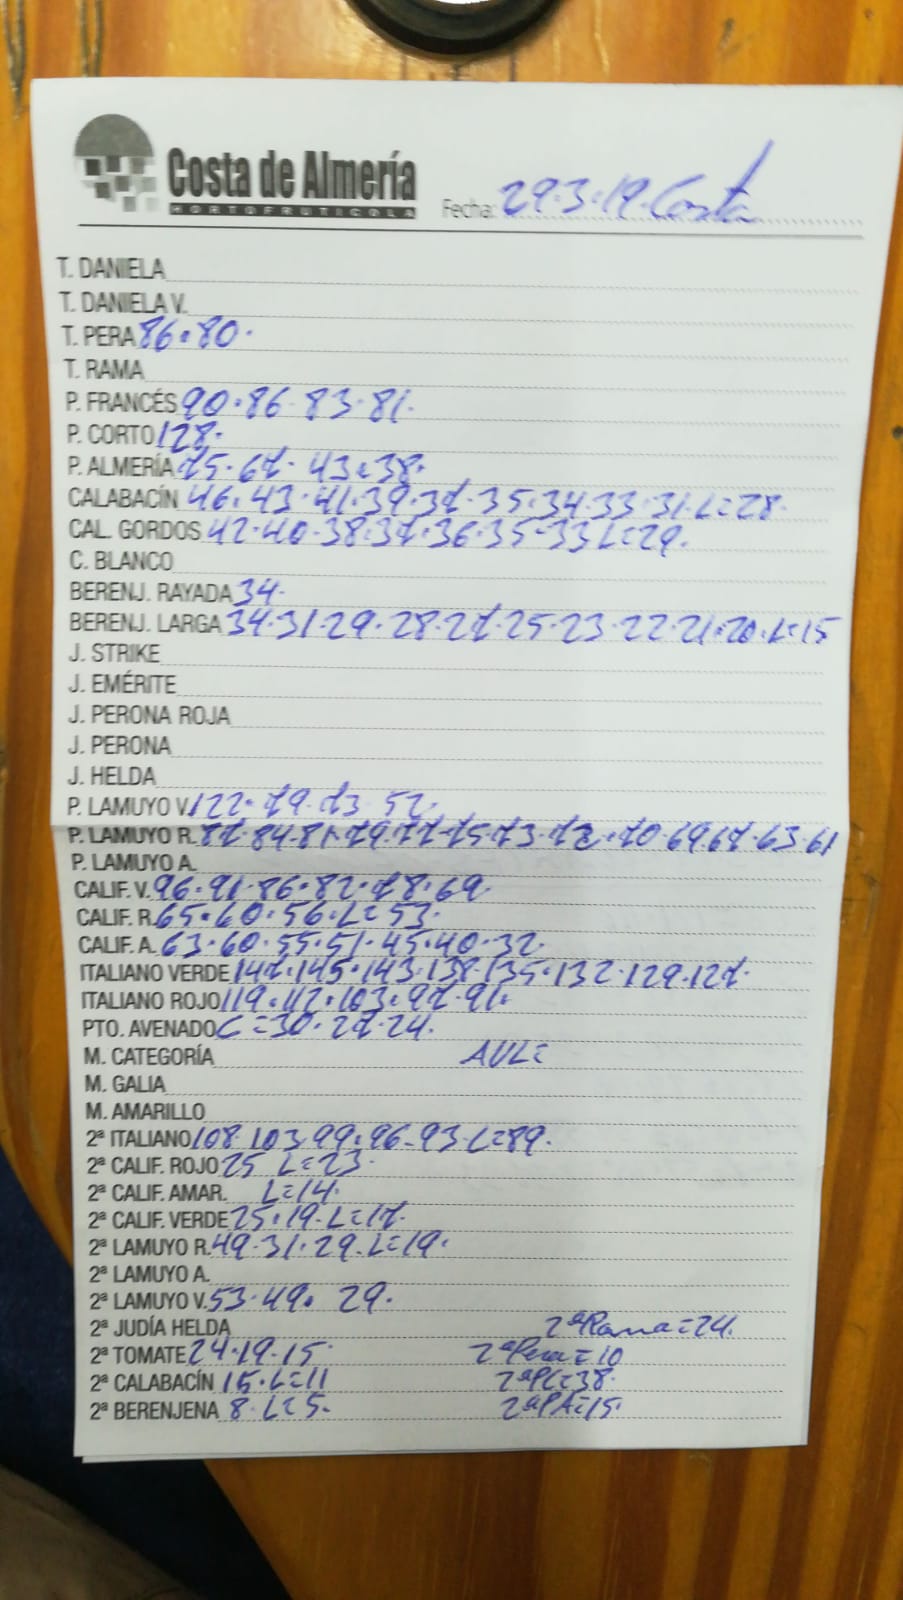 Costa de Almería
HORTOFRUTICOLA
Fecha: 29.3.19. Costa
T. DANIELA
T. DANIELA V.
T. PERA 86.80.
T. RAMA
P. FRANCÉS 90.86.83.81.
P. CORTO 128.
P. ALMERÍA 75.67. 43.38.
CALABACÍN 46.43.41.39.37.35.34.33.31.L=28.
CAL. GORDOS 42.40.38.37.36.35-33 L=29.
C. BLANCO
BERENJ. RAYADA 34.
BERENJ. LARGA 34.31.29.28.27.25.23.22.21.20.L=15
J. STRIKE
J. EMÉRITE
J. PERONA ROJA
J. PERONA
J. HELDA
P. LAMUYO V. 122.79.73.52.
P. LAMUYO R. 87.84.81.79.77.75.73.72.70.69.67.63.61
P. LAMUYO A.
CALIF. V. 96.91.86.82.78.69.
CALIF. R. 65.60.56.L=53.
CALIF. A. 63.60.55.51.45.40.32.
ITALIANO VERDE 147.145.143.138.135.132.129.127.
ITALIANO ROJO 119.112.103.97.91.
PTO. AVENADO C=30.27.24.
M. CATEGORÍA AVL=
M. GALIA
M. AMARILLO
2ª ITALIANO 108.103.99.96-93.L=89.
2ª CALIF. ROJO 25 L=23.
2ª CALIF. AMAR. L=14.
2ª CALIF. VERDE 25.19.L=17.
2ª LAMUYO R. 49.31.29.L=19.
2ª LAMUYO A.
2ª LAMUYO V. 53.49. 29.
2ª JUDÍA HELDA 2ªRama=24.
2ª TOMATE 24.19.15. 2ªPera=10
2ª CALABACÍN 15.L=11 2ªPC=38.
2ª BERENJENA 8.L=5. 2ªPA=15.